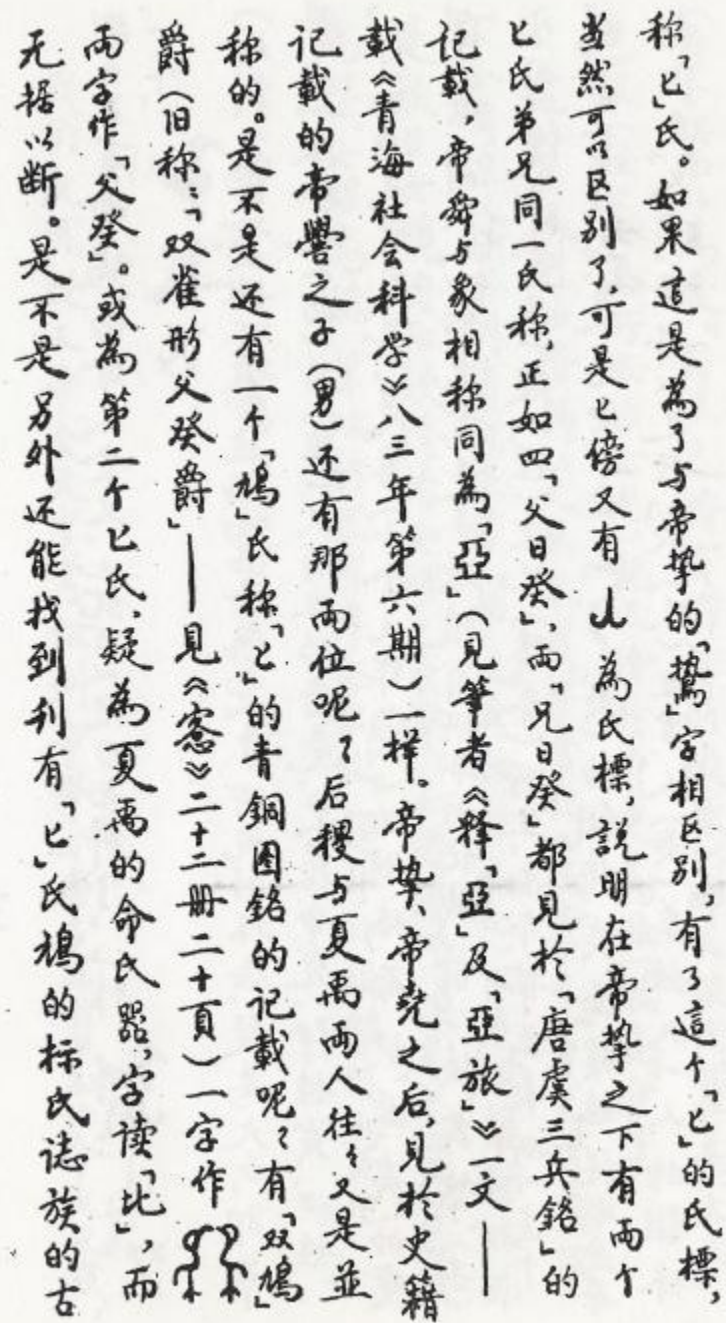 称「匕」氏。如果這是為了与帝挚的「鷙」字相区别，有了這个「匕」的氏標，
当然可以区别了，可是匕傍又有 为氏標，説明在帝挚之下有両个
匕氏弟兄同一氏称，正如四「父日癸」，而「兄日癸」都見於「唐虞三兵銘」的
記載，帝舜与象相称同為「亞」（見筆者《释「亞」及「亞旅」》一文——
載《青海社会科学》八三年第六期）一样。帝挚、帝堯之后，見於史籍
记載的帝嚳之子（男）还有那両位呢？后稷与夏禹両人往々又是並
称的。是不是还有一个「鳩」氏称「匕」的青銅图銘的記載呢？有「双鳩」
爵（旧称：「双雀形父癸爵」——見《窓》二十二册二十頁）一字作
両字作「父癸」。或為第二个匕氏，疑為夏禹的命氏器，字读「比」，而
无据以断。是不是另外还能找到刊有「匕」氏鳩的标氏誌族的古